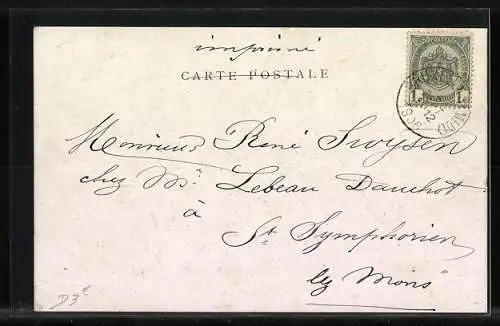 imprimé
CARTE POSTALE
1c 1c
Monsieur René Swysen
chez Mr. Lebeau Dauchot
à
St Symphorien
lez Mons
D3e